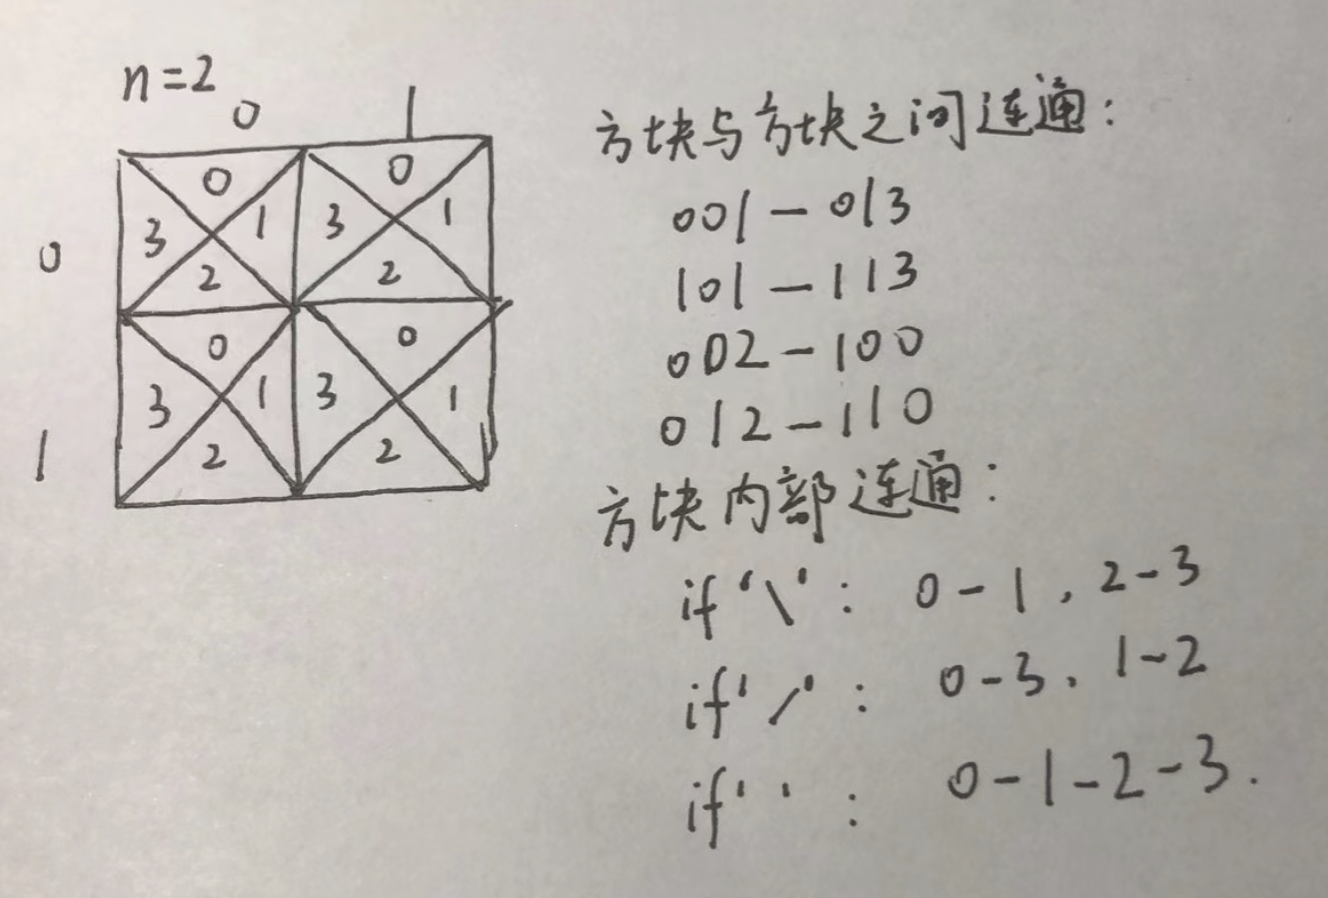 n=2
0 1
0 0
3 1 3 1
0
2 2
0 0
3 1 3 1
1
2 2
方块与方块之间连通：
001-013
101-113
002-100
012-110
方块内部连通：
if '\' : 0-1, 2-3
if '/' : 0-3、1-2
if ' ' : 0-1-2-3.